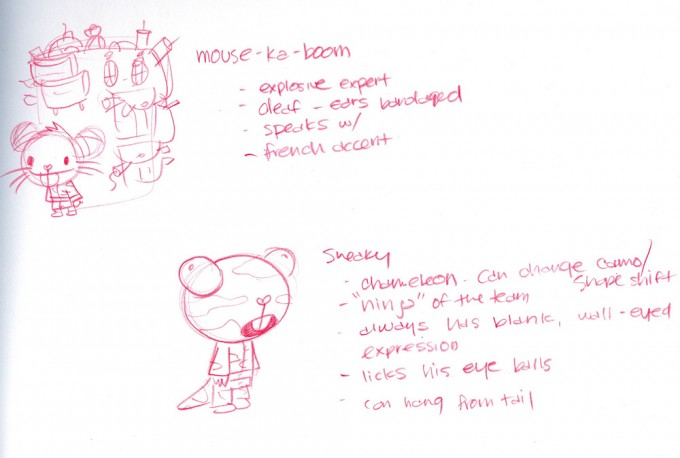 mouse-ka-boom
- explosive expert
- deaf - ears bandaged
- speaks w/
- french accent
Sneaky
- chameleon. can change camo/
shape shift
- "ninja" of the team
- always has blank, wall-eyed
expression
- licks his eye balls
- can hang from tail